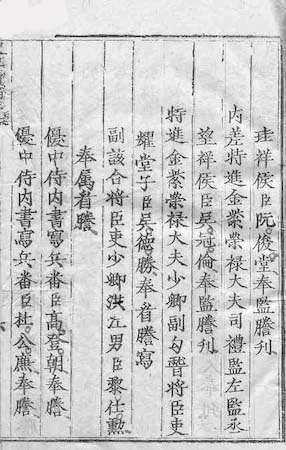 珪祥侯臣阮俊堂奉監謄刋
内差特進金紫榮禄大夫司禮監左監丞
望祥侯臣吴冠倫奉監謄刋
特進金紫榮禄大夫少卿副知暬將臣吏
耀堂子臣吴德勝奉省謄寫
副該合將臣吏少卿洪江男臣黎仕勲
奉属省謄
優中侍内書寫兵番臣高登朝奉謄
優中侍内書寫兵番臣杜公廉奉謄